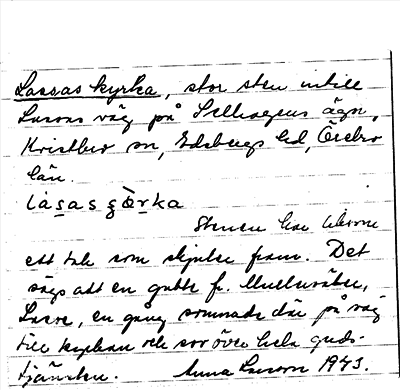 Lassas kyrka, stor sten intill
Lassas väg på Sellvagens ägn,
Kvistbro sn, Edsbergs hd, Örebro
län.
Stenen har liksom
ett tak som skjuter fram. Det
sägs att en gubbe fr. Mullersäter,
Lasse, en gång somnade där på väg
till kyrkan och sov över hela guds-
tjänsten. Anna Larson 1943.